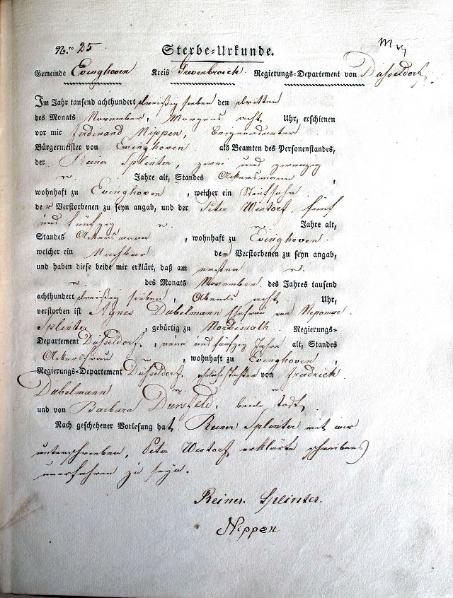 N.ro 25 Sterbe-Urkunde.
Gemeinde Evinghoven Kreis Grevenbroich Regierungs-Departement von Düsseldorf
Im Jahr tausend achthundert dreißig sieben den dritten
des Monats November, Morgens acht Uhr, erschienen
vor mir Ferdinand Nippen, Beigeordneter
Bürgermeister von Evinghoven als Beamten des Personenstandes,
der Reiner Splinter, zwei und zwanzig
Jahre alt, Standes Ackersmann,
wohnhaft zu Evinghoven, welcher ein
der Verstorbenen zu seyn angab, und der Peter fünf
und Jahre alt,
Standes Ackersmann, wohnhaft zu Evinghoven
welcher ein Nachbar der Verstorbenen zu seyn angab,
und haben diese beide mir erklärt, daß am ersten
des Monats November des Jahres tausend
achthundert dreißig sieben, Abends acht Uhr,
verstorben ist Agnes Dabelmann
Splinter, gebürtig zu Regierungs-
Departement Düsseldorf, neun und fünfzig Jahre alt, Standes
Ackersfrau, wohnhaft zu Evinghoven,
Regierungs-Departement Düsseldorf, von
Dabelmann
und von Barbara beide todt,
Nach geschehener Vorlesung hat Reiner Splinter mit mir
unterschrieben, Peter erklärte schreibens
unerfahren zu seyn.
Reiner Splinter.
Nippen